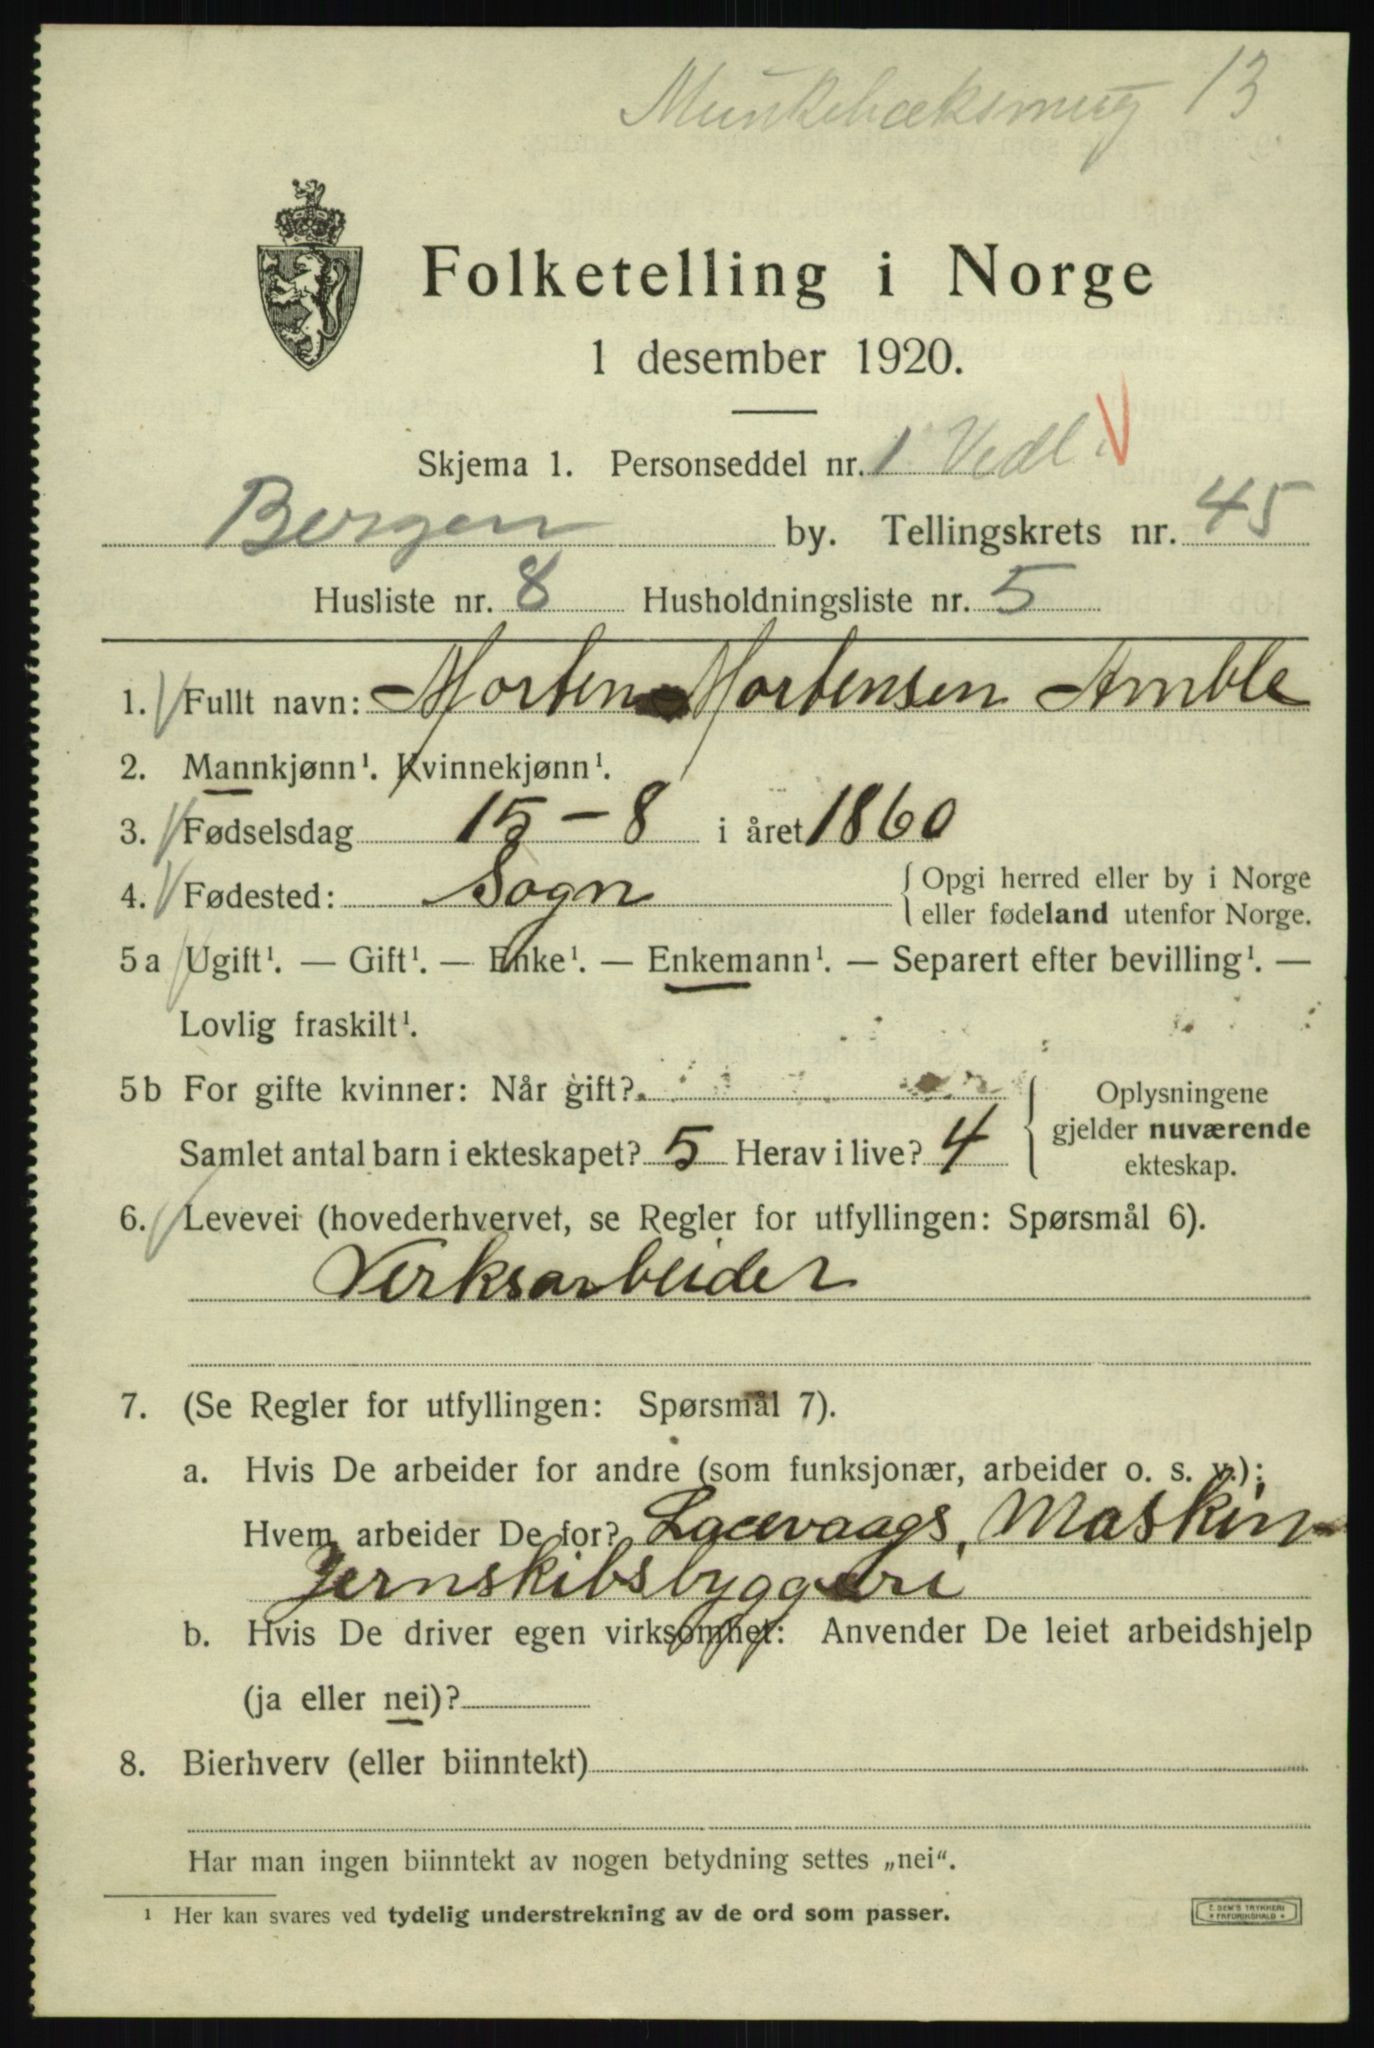 Munkebæksmug 13
Folketelling i Norge
1 desember 1920.
Skjema 1. Personseddel nr. 1 Vedl V
Bergen by. Tellingskrets nr. 45
Husliste nr. 8 Husholdningsliste nr. 5
1. Fullt navn: Morten Mortensen Amble
2. Mannkjønn¹. Kvinnekjønn¹.
3. Fødselsdag 15-8 i året 1860
4. Fødested: Sogn { Opgi herred eller by i Norge
eller fødeland utenfor Norge.
5a Ugift¹. — Gift¹. — Enke¹. — Enkemann¹. — Separert efter bevilling¹. —
Lovlig fraskilt¹.
5b For gifte kvinner: Når gift?
Samlet antal barn i ekteskapet? 5 Herav i live? 4
Oplysningene
gjelder nuværende
ekteskap.
6. Levevei (hovederhvervet, se Regler for utfyllingen: Spørsmål 6).
Verksarbeider
7. (Se Regler for utfyllingen: Spørsmål 7).
a. Hvis De arbeider for andre (som funksjonær, arbeider o. s. v.):
Hvem arbeider De for? Laxevaags, Maskin-
Jernskibsbyggeri
b. Hvis De driver egen virksomhet: Anvender De leiet arbeidshjelp
(ja eller nei)?
8. Bierhverv (eller biinntekt)
Har man ingen biinntekt av nogen betydning settes „nei“.
¹ Her kan svares ved tydelig understrekning av de ord som passer.
E. SEM'S TRYKKERI
FREDRIKSHALD